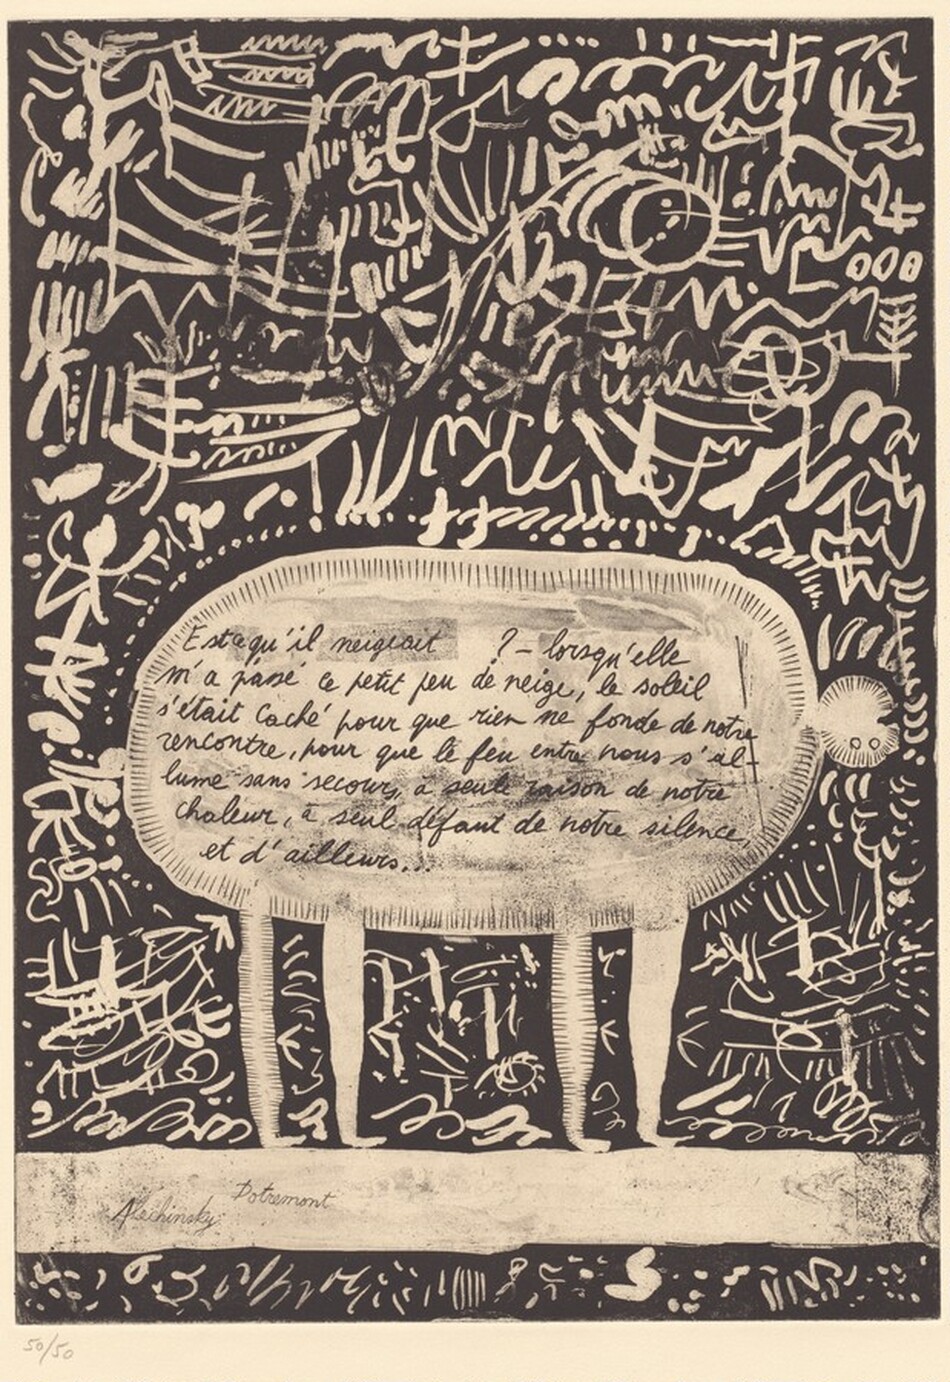 Estcequ'il neigeait ? – lorsqu'elle
m'a passé ce petit peu de neige, le soleil
s'était caché pour que rien ne fonde de notre
rencontre, pour que le feu entre nous s'al-
lume sans secours, à seule raison de notre
chaleur, à seul défaut de notre silence,
et d'ailleurs...
Dotremont
Alechinsky
50/50